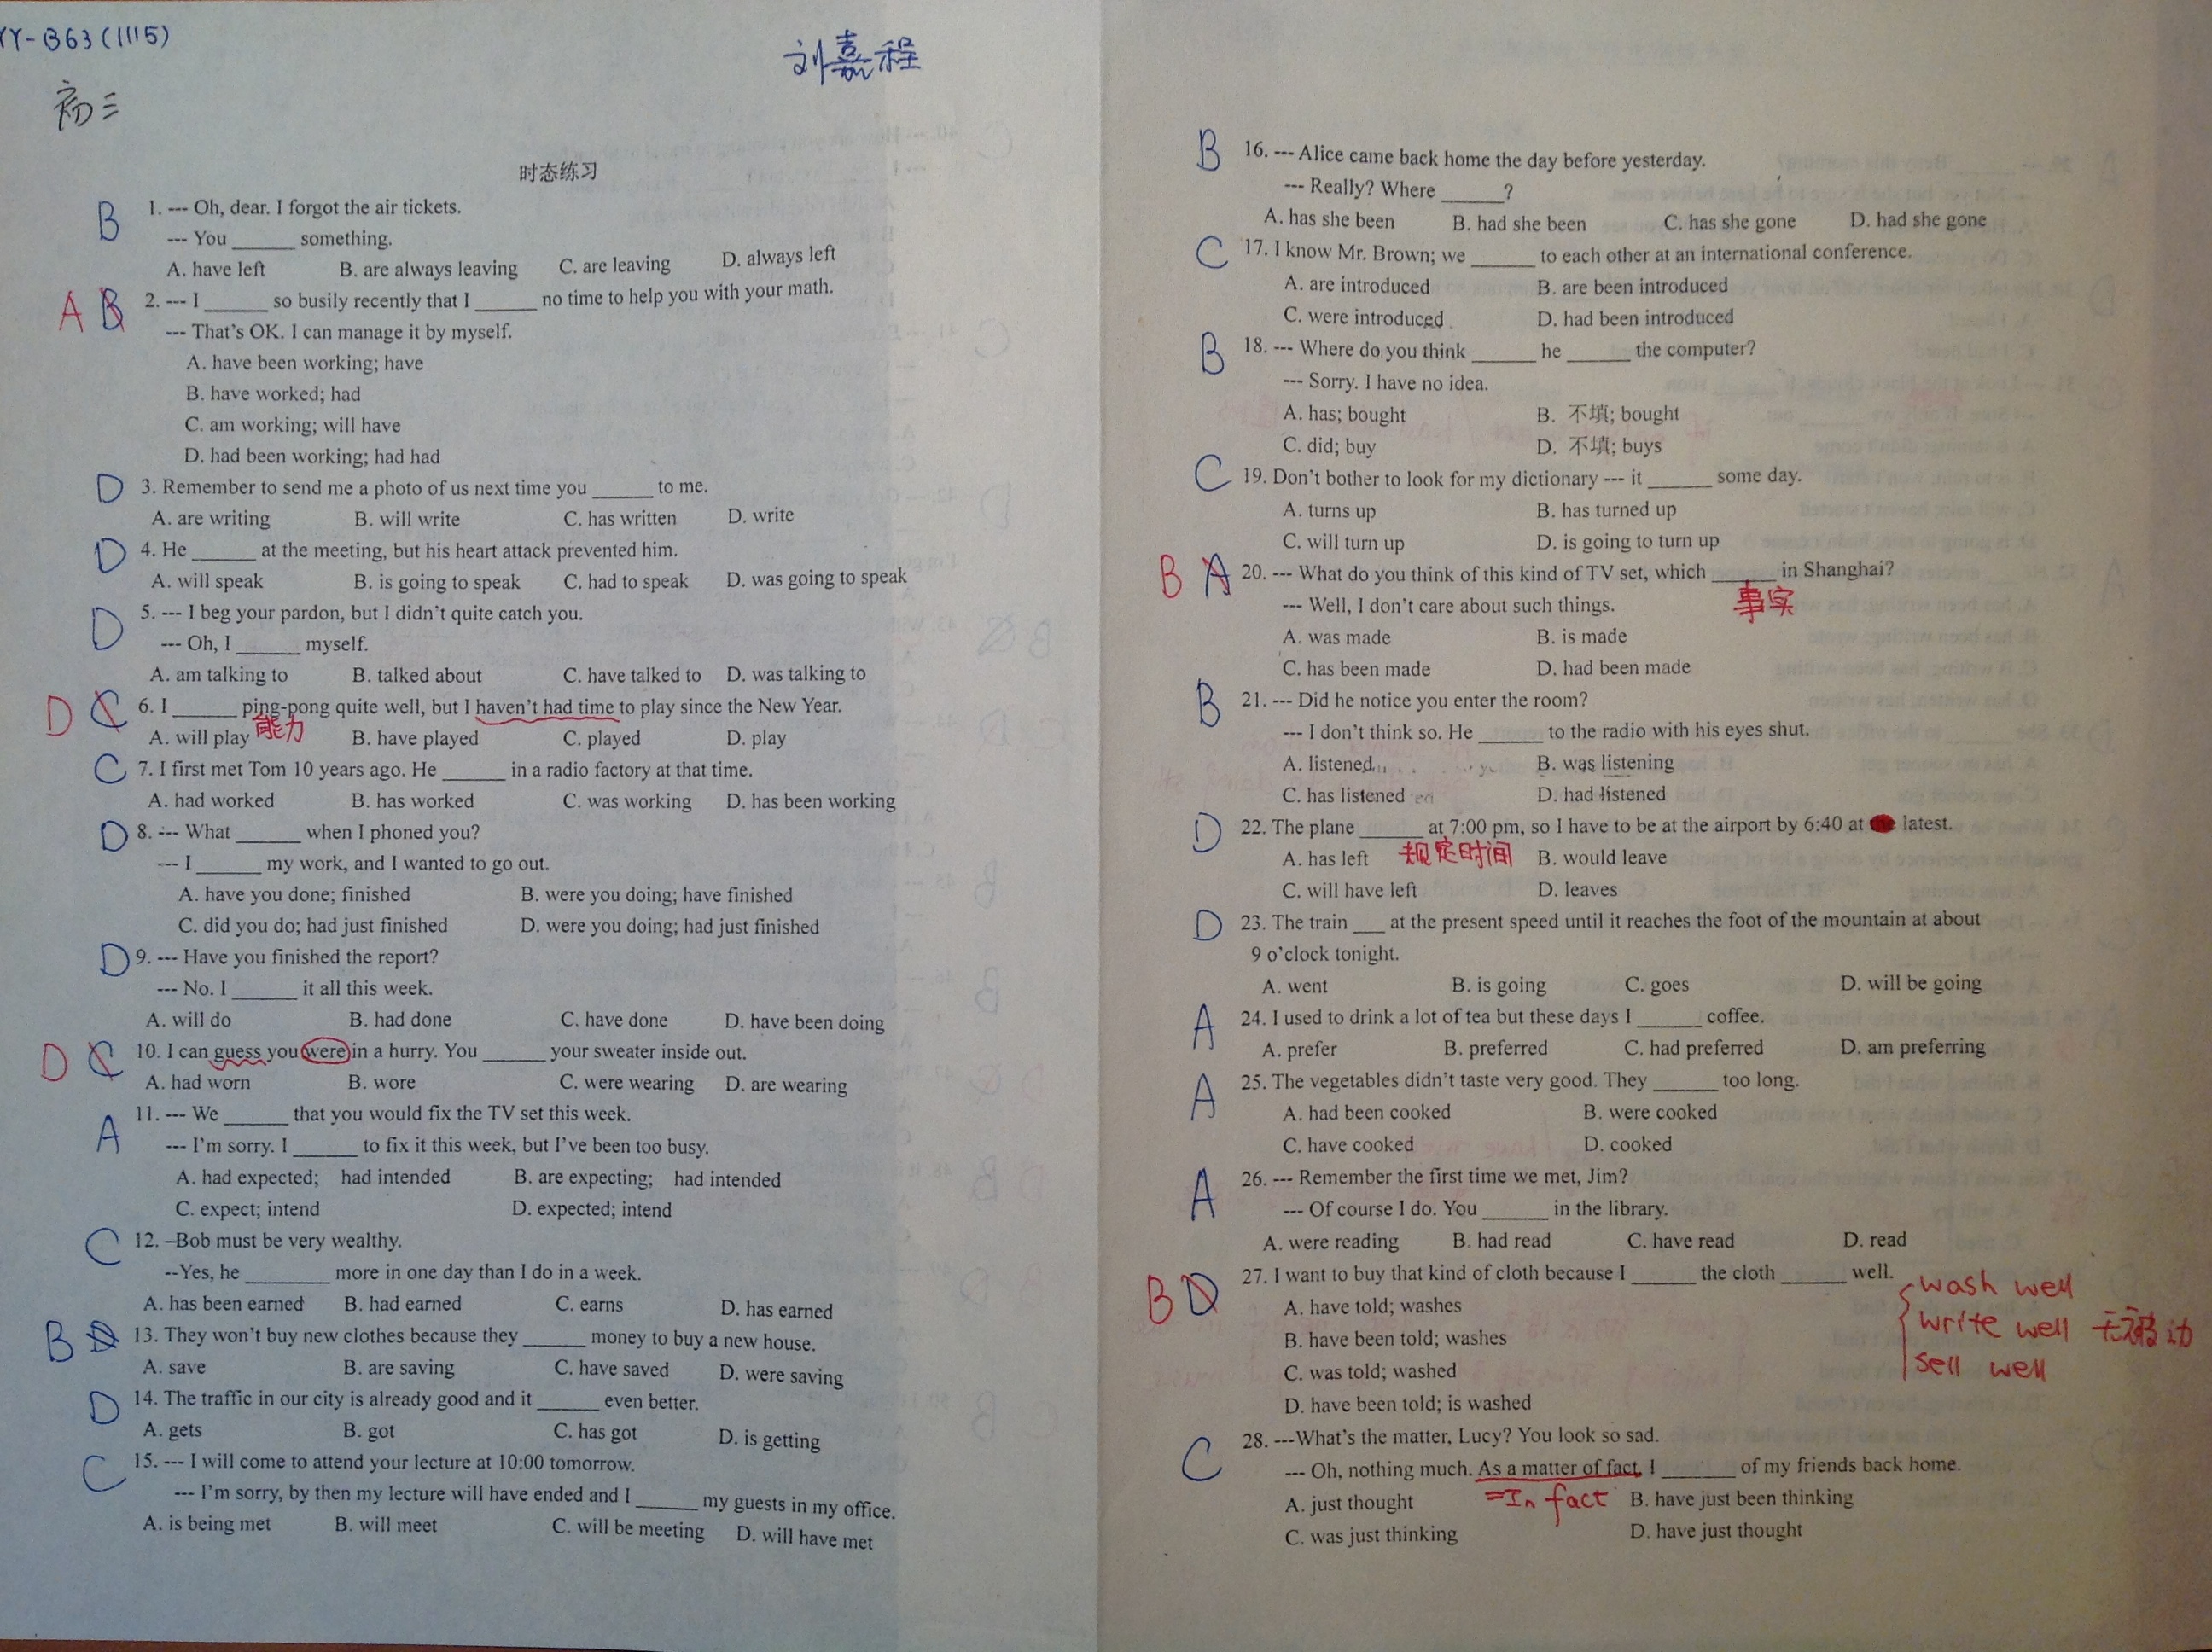 YY-B63(1115)
刘嘉程
初三
时态练习
B 1. --- Oh, dear. I forgot the air tickets.
--- You ______ something.
A. have left B. are always leaving C. are leaving D. always left
A B 2. --- I ______ so busily recently that I ______ no time to help you with your math.
--- That's OK. I can manage it by myself.
A. have been working; have
B. have worked; had
C. am working; will have
D. had been working; had had
D 3. Remember to send me a photo of us next time you ______ to me.
A. are writing B. will write C. has written D. write
D 4. He ______ at the meeting, but his heart attack prevented him.
A. will speak B. is going to speak C. had to speak D. was going to speak
D 5. --- I beg your pardon, but I didn't quite catch you.
--- Oh, I ______ myself.
A. am talking to B. talked about C. have talked to D. was talking to
D C 6. I ______ ping-pong quite well, but I haven't had time to play since the New Year.
能力
A. will play B. have played C. played D. play
C 7. I first met Tom 10 years ago. He ______ in a radio factory at that time.
A. had worked B. has worked C. was working D. has been working
D 8. --- What ______ when I phoned you?
--- I ______ my work, and I wanted to go out.
A. have you done; finished B. were you doing; have finished
C. did you do; had just finished D. were you doing; had just finished
D 9. --- Have you finished the report?
--- No. I ______ it all this week.
A. will do B. had done C. have done D. have been doing
D C 10. I can guess you were in a hurry. You ______ your sweater inside out.
A. had worn B. wore C. were wearing D. are wearing
A 11. --- We ______ that you would fix the TV set this week.
--- I'm sorry. I ______ to fix it this week, but I've been too busy.
A. had expected; had intended B. are expecting; had intended
C. expect; intend D. expected; intend
C 12. –Bob must be very wealthy.
--Yes, he ________ more in one day than I do in a week.
A. has been earned B. had earned C. earns D. has earned
B D 13. They won't buy new clothes because they ______ money to buy a new house.
A. save B. are saving C. have saved D. were saving
D 14. The traffic in our city is already good and it ______ even better.
A. gets B. got C. has got D. is getting
C 15. --- I will come to attend your lecture at 10:00 tomorrow.
--- I'm sorry, by then my lecture will have ended and I ______ my guests in my office.
A. is being met B. will meet C. will be meeting D. will have met
B 16. --- Alice came back home the day before yesterday.
--- Really? Where ______?
A. has she been B. had she been C. has she gone D. had she gone
C 17. I know Mr. Brown; we ______ to each other at an international conference.
A. are introduced B. are been introduced
C. were introduced D. had been introduced
B 18. --- Where do you think ______ he ______ the computer?
--- Sorry. I have no idea.
A. has; bought B. 不填; bought
C. did; buy D. 不填; buys
C 19. Don't bother to look for my dictionary --- it ______ some day.
A. turns up B. has turned up
C. will turn up D. is going to turn up
B A 20. --- What do you think of this kind of TV set, which ______ in Shanghai?
--- Well, I don't care about such things. 事实
A. was made B. is made
C. has been made D. had been made
B 21. --- Did he notice you enter the room?
--- I don't think so. He ______ to the radio with his eyes shut.
A. listened B. was listening
C. has listened D. had listened
D 22. The plane ______ at 7:00 pm, so I have to be at the airport by 6:40 at the latest.
A. has left 规定时间 B. would leave
C. will have left D. leaves
D 23. The train ___ at the present speed until it reaches the foot of the mountain at about
9 o'clock tonight.
A. went B. is going C. goes D. will be going
A 24. I used to drink a lot of tea but these days I ______ coffee.
A. prefer B. preferred C. had preferred D. am preferring
A 25. The vegetables didn't taste very good. They ______ too long.
A. had been cooked B. were cooked
C. have cooked D. cooked
A 26. --- Remember the first time we met, Jim?
--- Of course I do. You ______ in the library.
A. were reading B. had read C. have read D. read
B D 27. I want to buy that kind of cloth because I ______ the cloth ______ well.
A. have told; washes
B. have been told; washes
C. was told; washed
D. have been told; is washed
wash well
write well 无被动
sell well
C 28. ---What's the matter, Lucy? You look so sad.
--- Oh, nothing much. As a matter of fact, I _______ of my friends back home.
=In fact
A. just thought B. have just been thinking
C. was just thinking D. have just thought